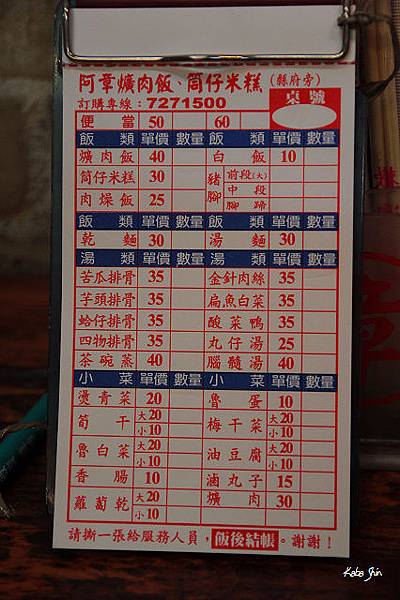 阿章爌肉飯、筒仔米糕(縣府旁)
訂購專線：7271500 桌號
便當 50 60
飯類 單價 數量 飯類 單價 數量
爌肉飯 40 白飯 10
筒仔米糕 30 豬腳 前段(大)
中段
肉燥飯 25 腳蹄
飯類 單價 數量 飯類 單價 數量
乾麵 30 湯麵 30
湯類 單價 數量 湯類 單價 數量
苦瓜排骨 35 金針肉絲 35
芋頭排骨 35 扁魚白菜 35
蛤仔排骨 35 酸菜鴨 35
四物排骨 35 丸仔湯 25
茶碗蒸 40 腦髓湯 40
小菜 單價 數量 小菜 單價 數量
燙青菜 20 魯蛋 10
筍干 大20 小10 梅干菜 大20 小10
魯白菜 大20 小10 油豆腐 大20 小10
香腸 10 滷丸子 15
蘿蔔乾 大20 小10 爌肉 30
請撕一張給服務人員，飯後結帳。謝謝！
Kaba Jhin